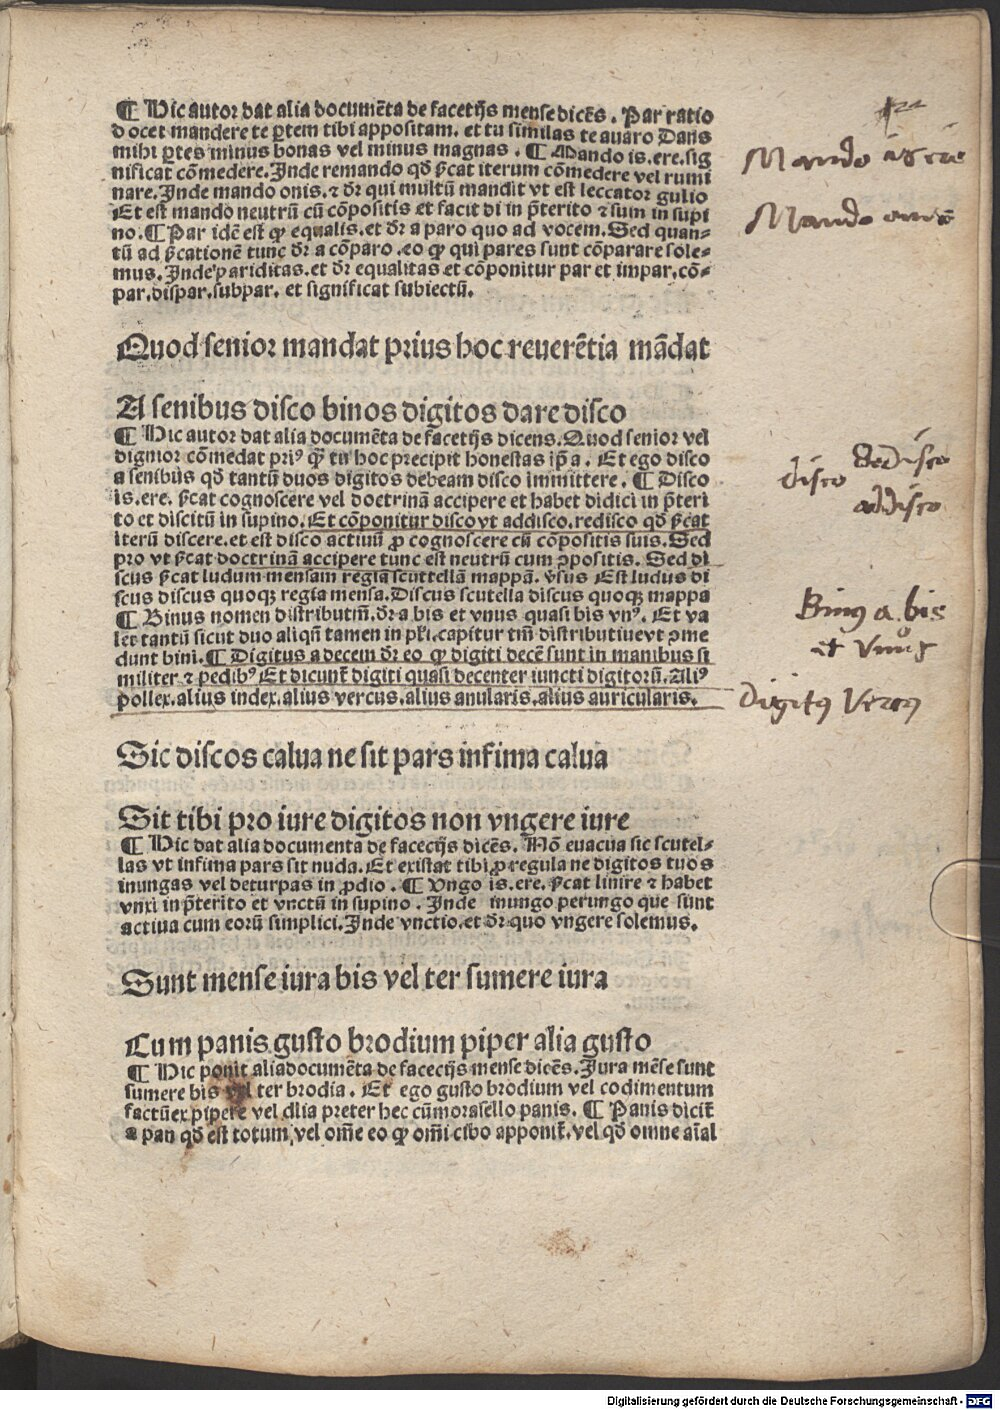 ¶ Hic autor dat alia documēta de facetijs mense dicēs. Par ratio
docet mandere te ꝑtem tibi appositam. et tu similas te auaro Dans
mihi ꝑtes minus bonas vel minus magnas. ¶ Mando is.ere.sig
nificat cōmedere. Inde remando qđ ſ̄cat iterum cōmedere vel rumi
nare. Inde mando onis. ⁊ dr̄ qui multū mandit vt est leccator gulio
Et est mando neutrū cū cōpositis et facit di in p̄terito ⁊ sum in supi
no. ¶ Par idē est ꝙ equalis. et dr̄ a paro quo ad vocem. Sed quan-
tū ad ſ̄cationē tunc dr̄ a cōparo. eo ꝙ qui pares sunt cōparare sole-
mus. Inde pariditas. et dr̄ equalitas et cōponitur par et impar. cō-
par. dispar. subpar. et significat subiectū.
Quod senior mandat prius hoc reuerētia mādat
A senibus disco binos digitos dare disco
¶ Hic autor dat alia documēta de facetijs dicens. Quod senior vel
dignior cōmedat pri⁹ qͣꝫ tu hoc precipit honestas ip̄a. Et ego disco
a senibus qđ tantū duos digitos debeam disco immittere. ¶ Disco
is.ere. ſ̄cat cognoscere vel doctrinā accipere et habet didici in p̄teri
to et discitū in supino. Et cōponitur disco vt addisco. redisco qđ ſ̄cat
iterū discere. et est disco actiuū ꝓ cognoscere cū cōpositis suis. Sed
pro vt ſ̄cat doctrinā accipere tunc est neutrū cum ꝯpositis. Sed di
scus ſ̄cat ludum mensam regiā scuttellā mappā. v̄sus Est ludus di
scus discus quoqꝫ regia mensa. Discus scutella discus quoqꝫ mappa
¶ Binus nomen distributiū. dr̄ a bis et vnus quasi bis vn⁹. Et va
let tantū sicut duo aliqñ tamen in pl̄i. capitur tm̄ distributiue vt ꝯme
dunt bini. ¶ Digitus a decem dr̄ eo ꝙ digiti decē sunt in manibus si
militer ⁊ pedib⁹ Et dicunt̄ digiti quasi decenter iuncti digitorū. Ali⁹
pollex. alius index. alius vercus. alius anularis. alius auricularis.
Sic discos calua ne sit pars infima calua
Sit tibi pro iure digitos non vngere iure
¶ Hic dat alia documenta de facecijs dicēs. Nō euacua sic scutel-
las vt infima pars sit nuda. Et existat tibi ꝓ regula ne digitos tuos
inungas vel deturpas in ꝓdio. ¶ Vngo is.ere. ſ̄cat linire ⁊ habet
vnxi in p̄terito et vnctū in supino. Inde inungo perungo que sunt
actiua cum eorū simplici. Inde vnctio. et dr̄ quo vngere solemus.
Sunt mense iura bis vel ter sumere iura
Cum panis gusto brodium piper alia gusto
¶ Hic ponit alia documēta de facecijs mense dicēs. Jura mēse sunt
sumere bis vel ter brodia. Et ego gusto brodium vel codimentum
factū ex pipere vel alia preter hec cū morsello panis. ¶ Panis dicit̄
a pan qđ est totum, vel om̄e eo ꝙ om̄i cibo apponit̄. vel qđ omne aīal
Mando is ere
Mando onis
disco Redisco
addisco
Bin⁹ a bis
et Vnus
Digit⁹ Verc⁹
Digitalisierung gefördert durch die Deutsche Forschungsgemeinschaft - DFG